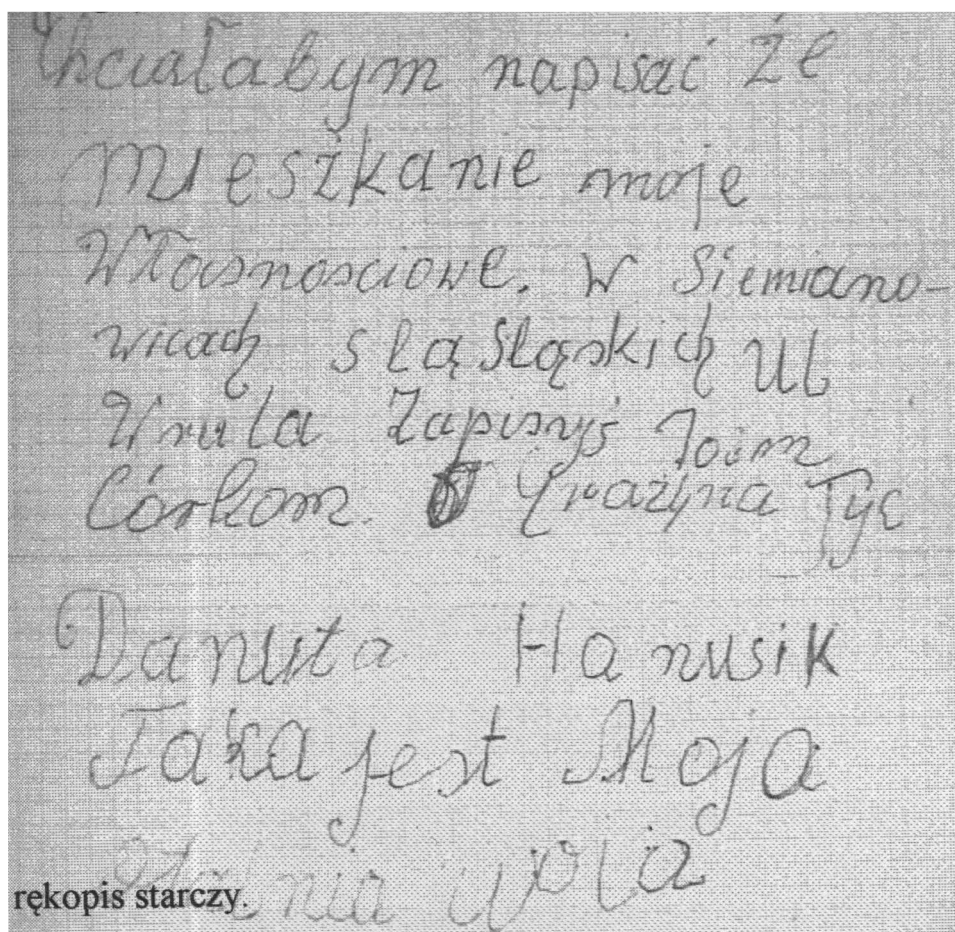 Chciałabym napisać że
mieszkanie moje
Własnosciowe. w Siemiano-
wicach slą Sląskich Ul
Wruła Zapisyś
Córkom. Grażyna Tyc
Danuta Hanusik
Taka jest Moja
wola
rękopis starczy.